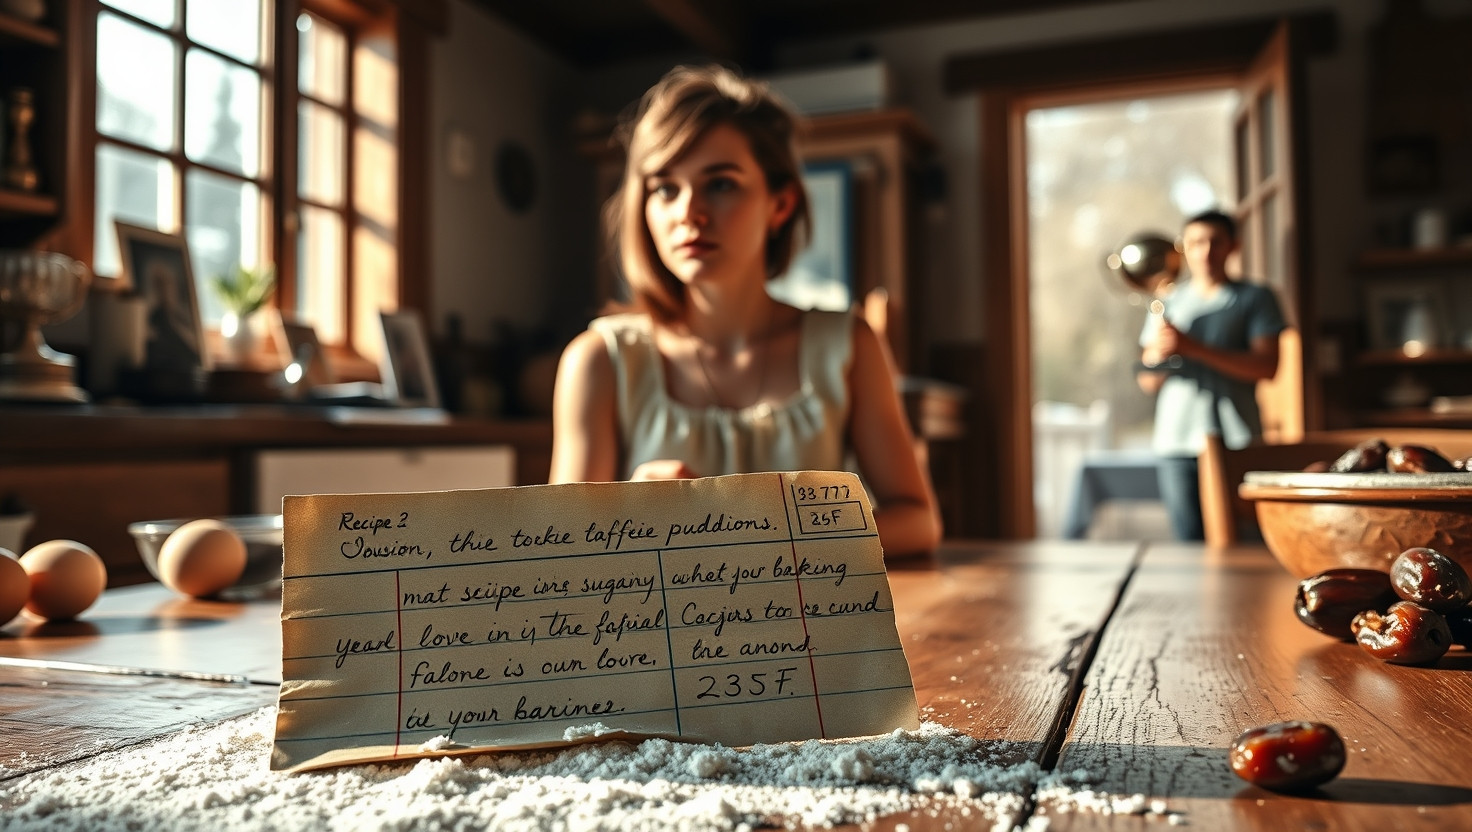 Recipe 2
Jousion, thie tockie taffeie puddions.
33 777
25F
mat sciipe ins sugany
yearl love in ij the fapual
falone is oum lovre.
in your barines.
what jou baking
Cacjurs to ce cund
the anond.
235F.